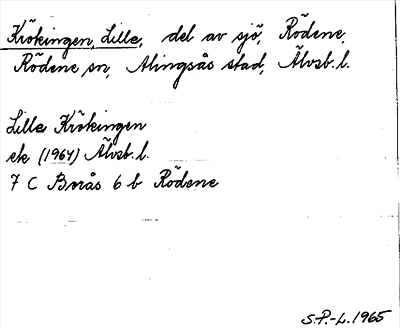 Krökingen, Lille, del av sjö, Rödene,
Rödene sn, Alingsås stad, Älvsb. l.
Lille Krökingen
ek (1964) Älvsb. l.
7 C Borås 6 b Rödene
S.P.-L. 1965